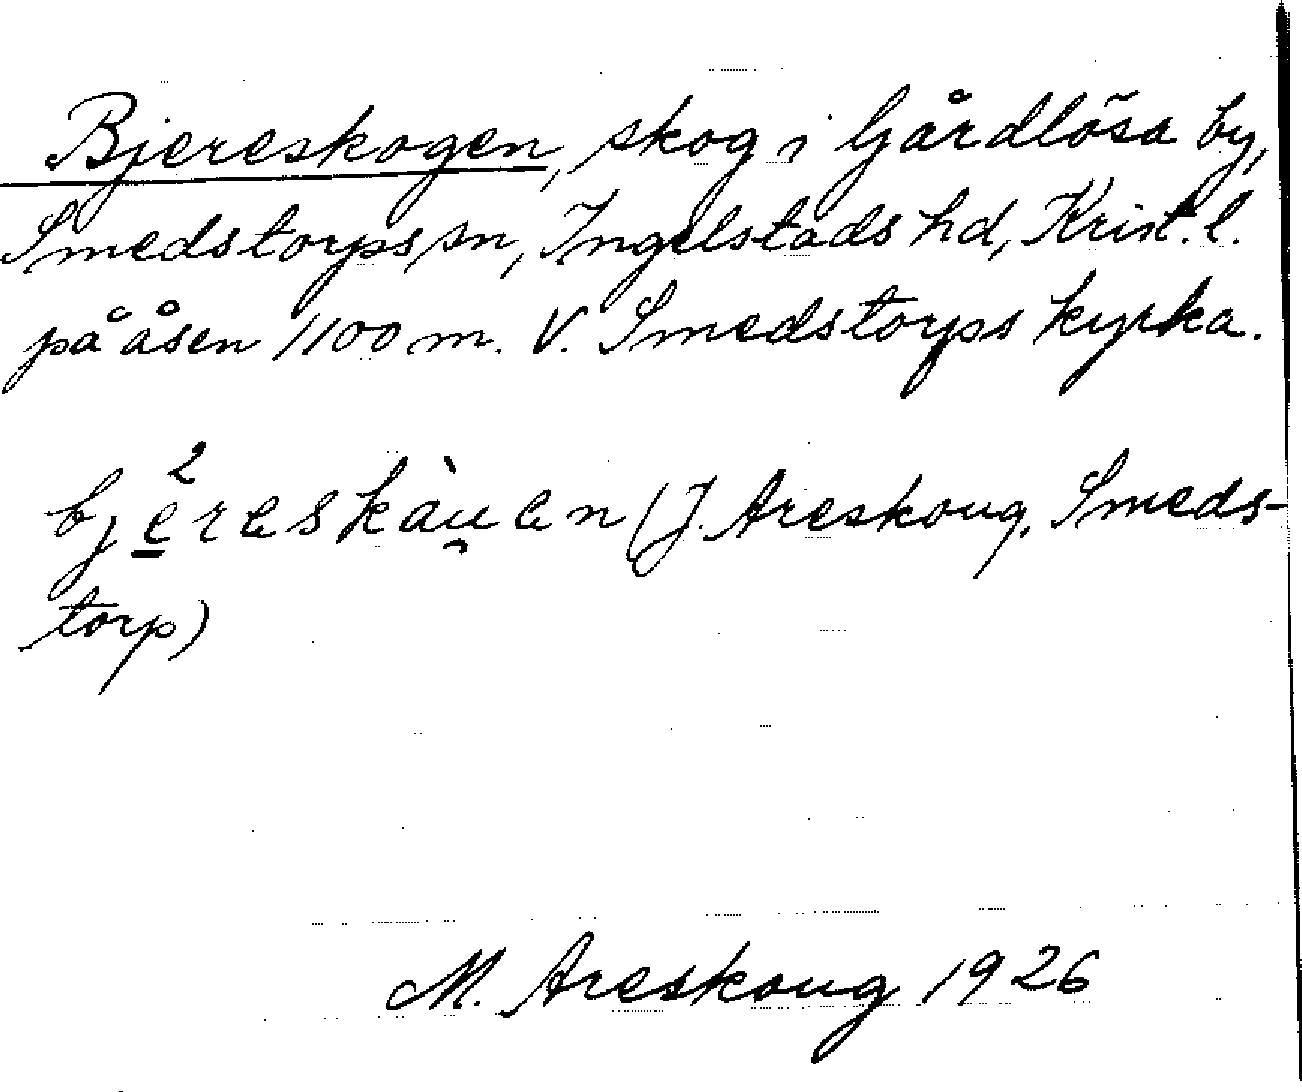 Bjereskogen, skog i Gårdlösa by,
Smedstorps sn, Ingelstads hd, Krist. l.
på åsen 1100 m. V. Smedstorps kyrka.
bjereskàu̯en (J. Areskoug, Smeds-
torp)
M. Areskoug 1926